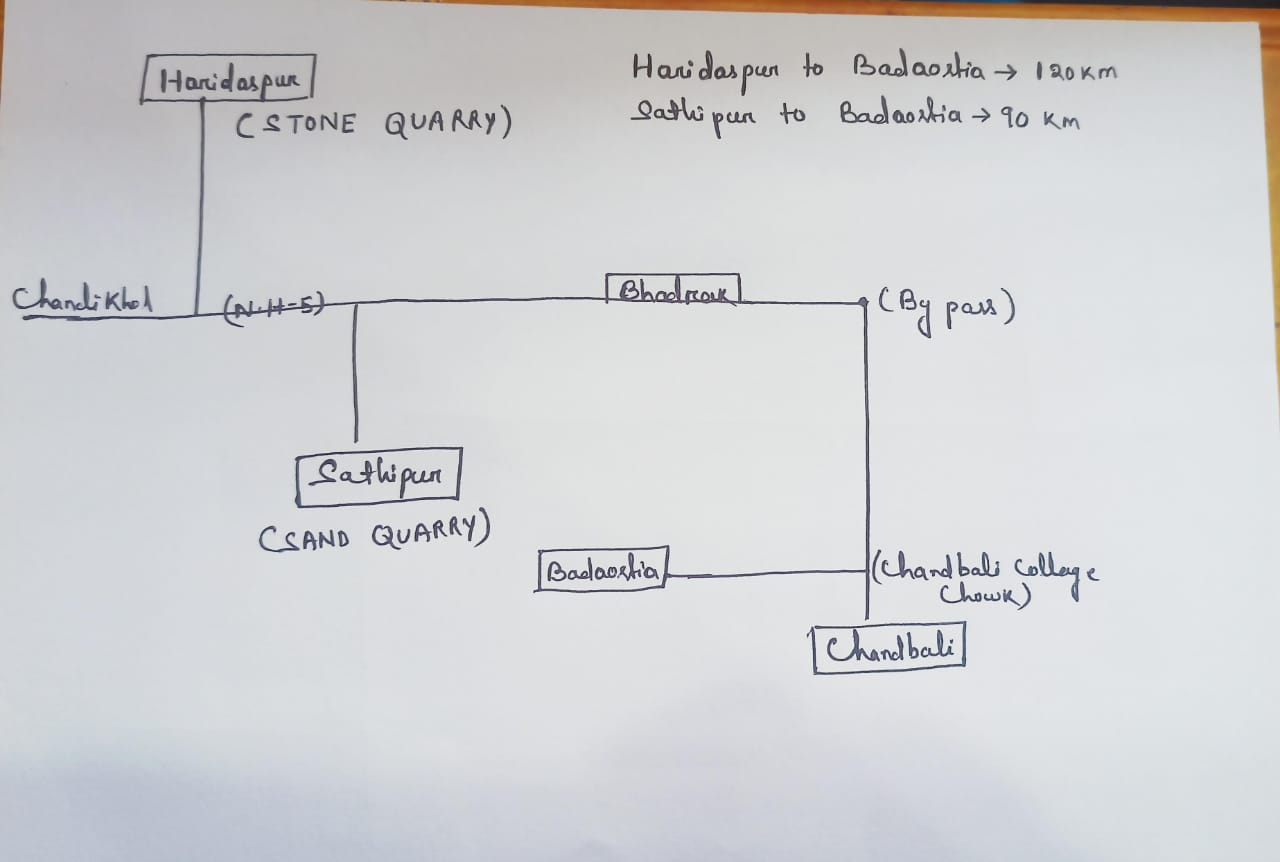 Haridaspur
(STONE QUARRY)
Haridaspur to Badaostia → 120 KM
Sathipur to Badaostia → 90 KM
Chandikhol
(N.H-5)
Bhadrak
(By pass)
Sathipur
(SAND QUARRY)
Badaostia
(Chandbali College
Chowk)
Chandbali